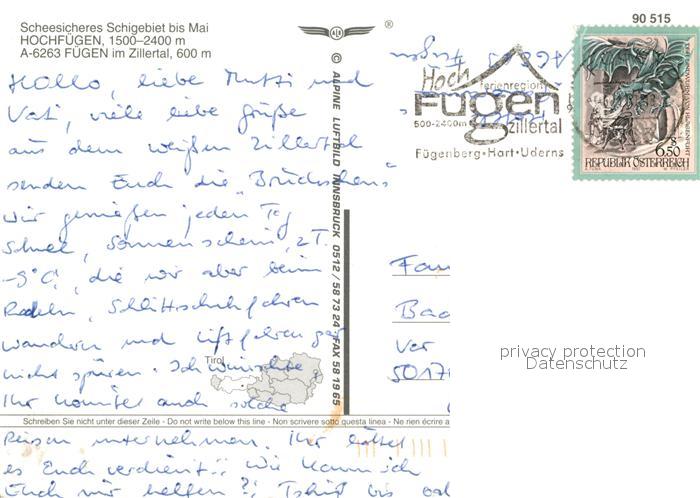 Scheesicheres Schigebiet bis Mai
HOCHFÜGEN, 1500–2400 m
A-6263 FÜGEN im Zillertal, 600 m
®
90 515
© ALPINE LUFTBILD INNSBRUCK 0512 / 58 73 24 FAX 58 18 65
Hoch
ferienregion
Fügen
500-2400m
zillertal
Fügenberg·Hart·Uderns
6.50
REPUBLIK ÖSTERREICH
Hallo, liebe Mutti und
Vati, viele liebe Grüße
aus dem weißen Zillertal
senden Euch die
Wir genießen jeden Tag
Schnee, Sonnenschein, z.T.
-9°C, die wir aber beim
Rodeln, Schlittschuhfahren
wandern und Liftfahren gar
nicht spüren. Ich wünschte,
Ihr könntet auch solche
Reisen unternehmen. Ihr hättet
es Euch verdient! Wie kann ich
Euch mir helfen?! Tschüß bis
Tirol
Schreiben Sie nicht unter dieser Zeile - Do not write below this line - Non scrivere sotto questa linea - Ne rien écrire a
Fam
Bac
5017
privacy protection
Datenschutz